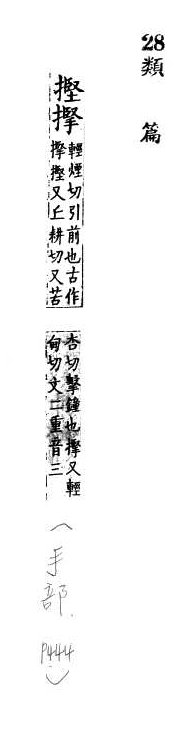 28類篇
摼掔
輕煙切引前也古作
掔摼又丘耕切又苦
杏切擊鐘也掔又輕
甸切文二重音三
（手部. P444）